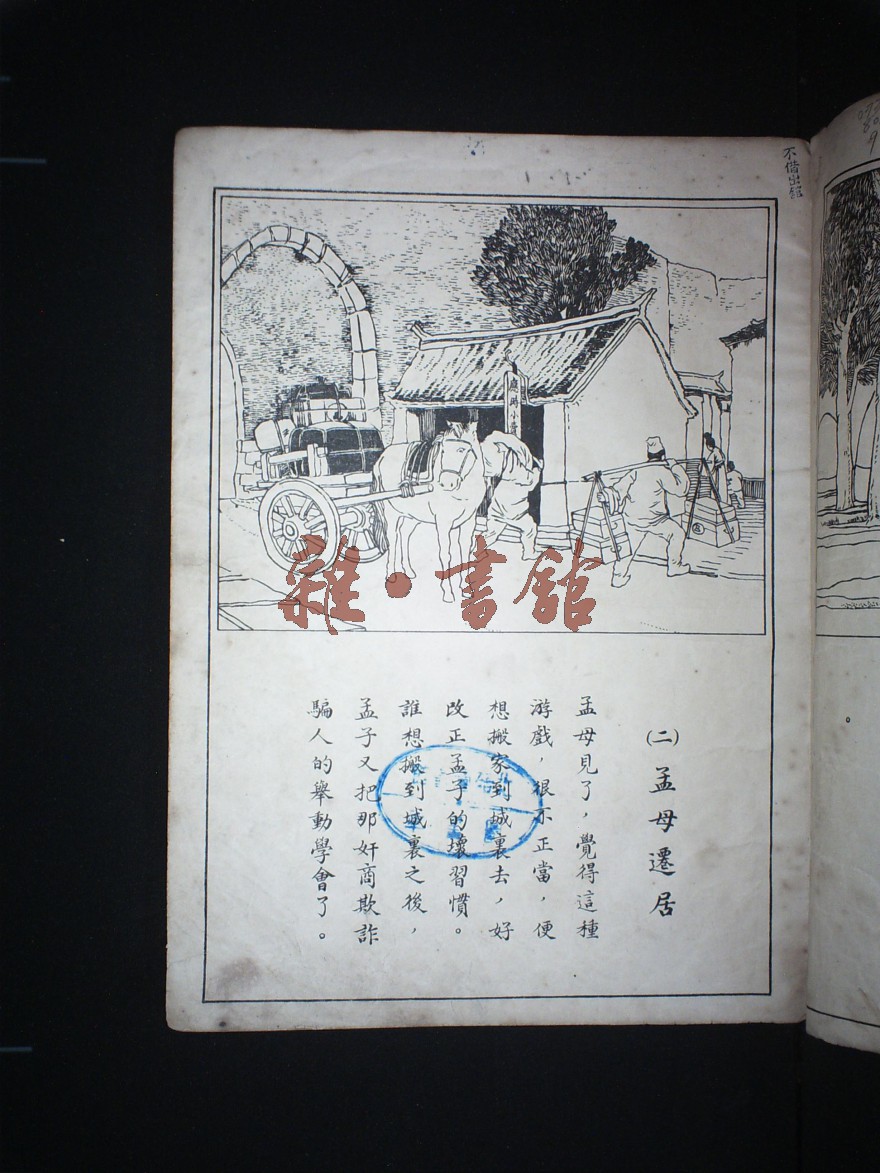 不借出館
雜·書館
(二)孟母遷居
孟母見了，覺得這種
游戲，很不正當，便
想搬家到城裏去，好
改正孟子的壞習慣。
誰想搬到城裏之後，
孟子又把那奸商欺詐
騙人的舉動學會了。